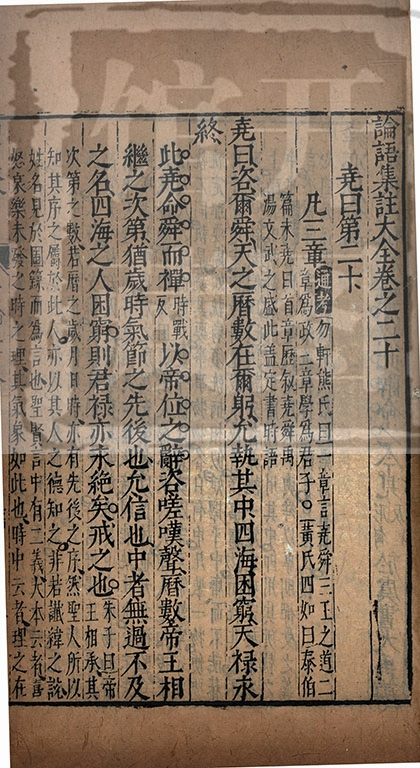 論語集註大全卷之二十
堯曰第二十
凡三章通考勿軒熊氏曰一章言堯舜三王之道二
章為政二章學為君子黃氏四如曰泰伯
篇末堯曰首章歷叙堯舜禹
湯文武之盛此蓋定書時語
堯曰咨爾舜天之曆數在爾躬允執其中四海困窮天祿永
終
此堯命舜而禪時戰反以帝位之辭咨嗟嘆聲曆數帝王相
繼之次第猶歲時氣節之先後也允信也中者無過不及
之名四海之人困窮則君祿亦永絕矣戒之也朱子曰帝王相承其
次第之數若曆之歲月日時亦有先後之序然聖人所以
知其序之屬於此人亦以其人之德知之非若讖緯之說
姓名見於圖籙而為言也聖賢言中有二義大本云者喜
怒哀樂未發之時之理其氣象如此也時中云者理之在